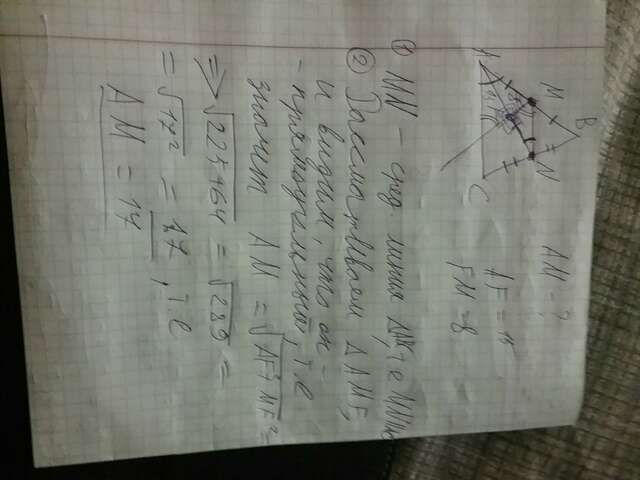 B
M
N
A
C
AM - ?
AF = 15
FM = 8
① MN - сред. линия Δ, т.е MN
② Рассматриваем Δ AMF,
и видим, что он -
- прямоугольный, т.е
значит AM = √AF²+MF² =
=> √225+64 = √289 =
= √17² = 17, т.е
AM = 17